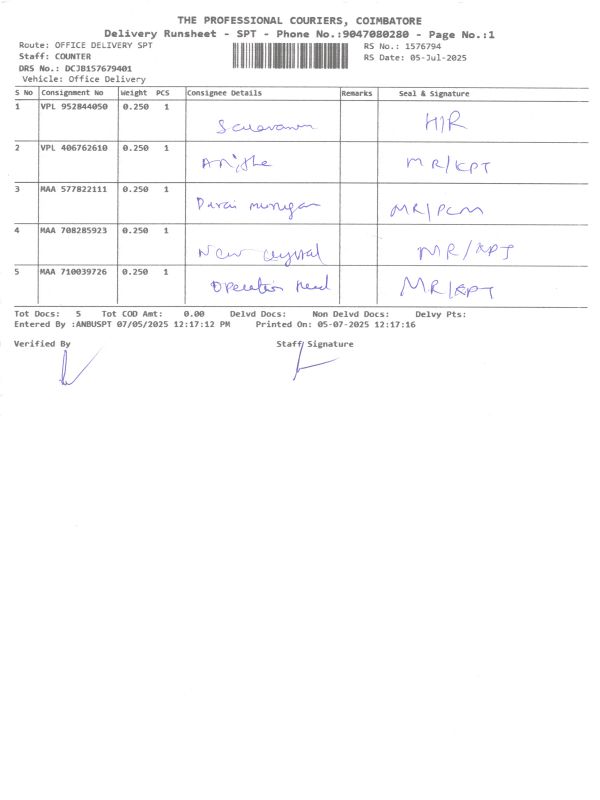 THE PROFESSIONAL COURIERS, COIMBATORE
Delivery Runsheet - SPT - Phone No.:9047080280 - Page No.:1
Route: OFFICE DELIVERY SPT RS No.: 1576794
Staff: COUNTER RS Date: 05-Jul-2025
DRS No.: DCJB157679401
Vehicle: Office Delivery
S No Consignment No Weight PCS Consignee Details Remarks Seal & Signature
1 VPL 952844050 0.250 1 H/R
2 VPL 406762610 0.250 1 MR/KPT
3 MAA 577822111 0.250 1 murugan MR/PCM
4 MAA 708285923 0.250 1 New crystal MR/KPT
5 MAA 710039726 0.250 1 Operation head MR/KPT
Tot Docs: 5 Tot COD Amt: 0.00 Delvd Docs: Non Delvd Docs: Delvy Pts:
Entered By :ANBUSPT 07/05/2025 12:17:12 PM Printed On: 05-07-2025 12:17:16
Verified By Staff Signature